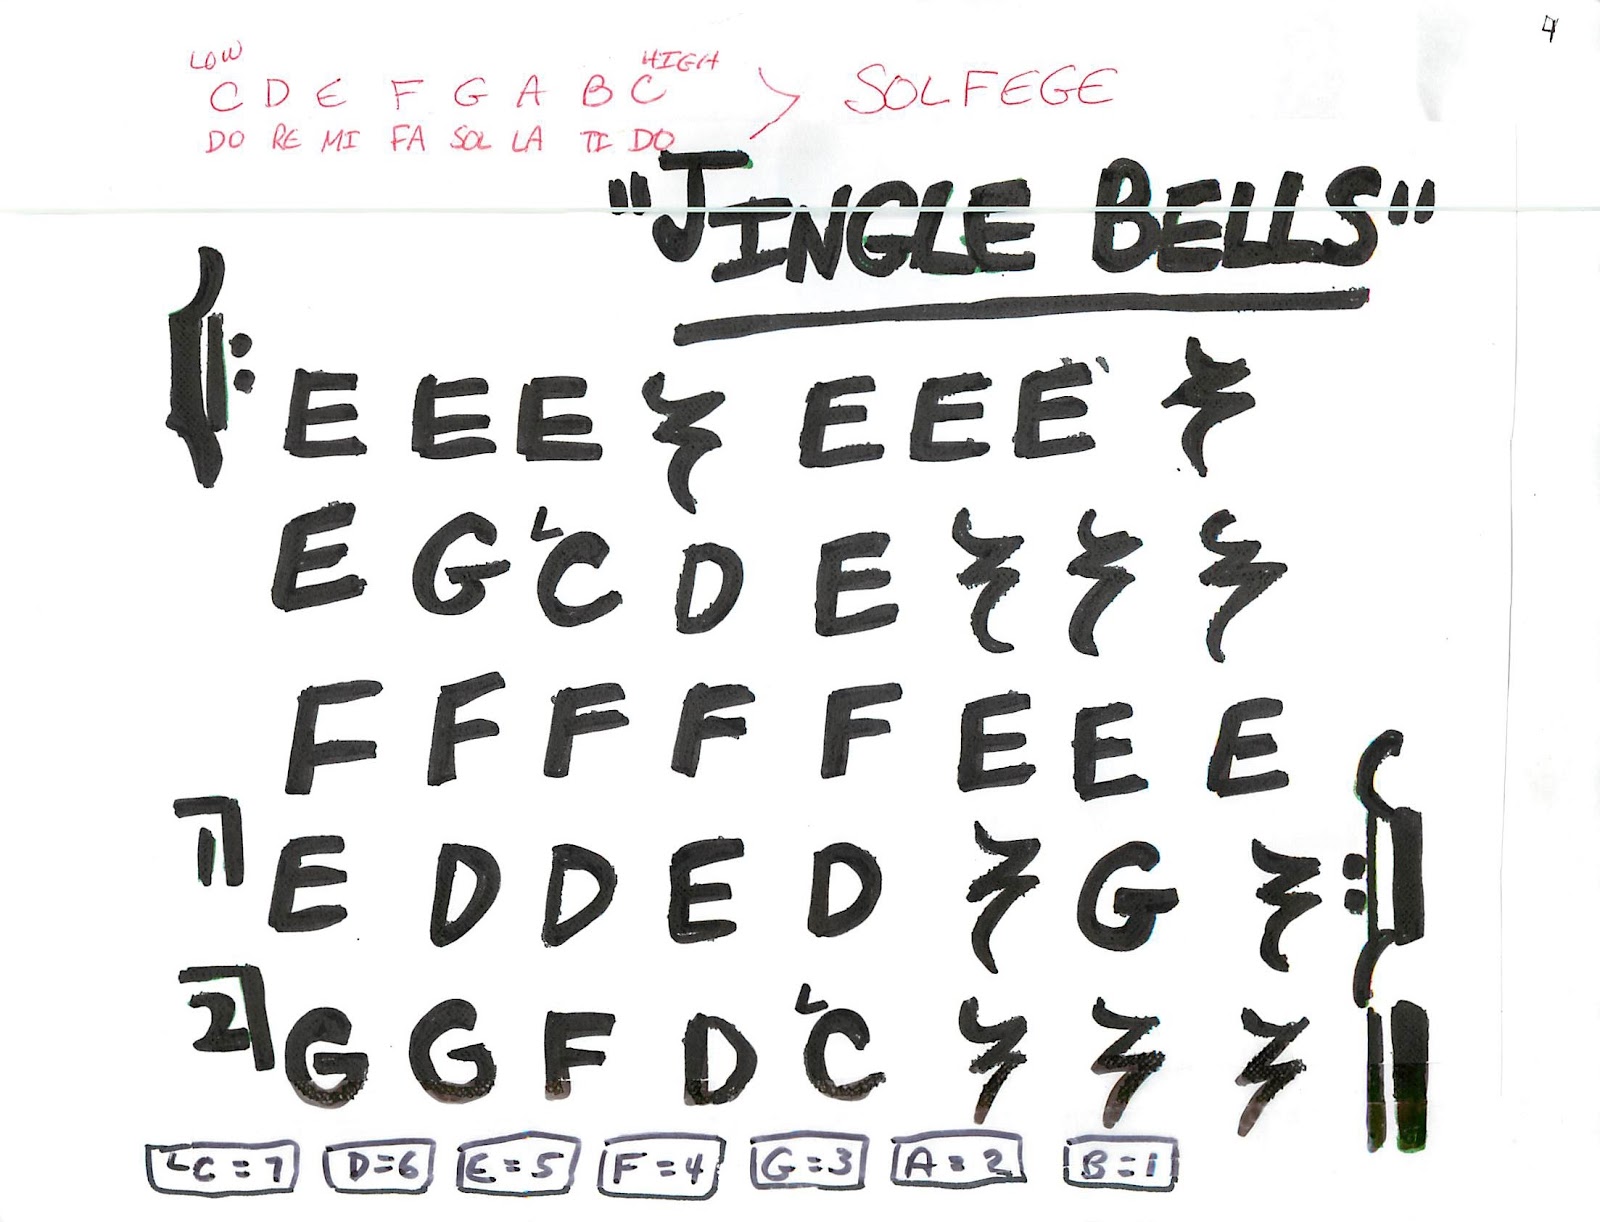 4
LOW HIGH
C D E F G A B C > SOLFEGE
DO RE MI FA SOL LA TI DO
"JINGLE BELLS"
E E E 𝄽 E E E 𝄽
E G LC D E 𝄽 𝄽 𝄽
F F F F F E E E
1 E D D E D 𝄽 G 𝄽
2 G G F D LC 𝄽 𝄽 𝄽
LC=7 D=6 E=5 F=4 G=3 A=2 B=1